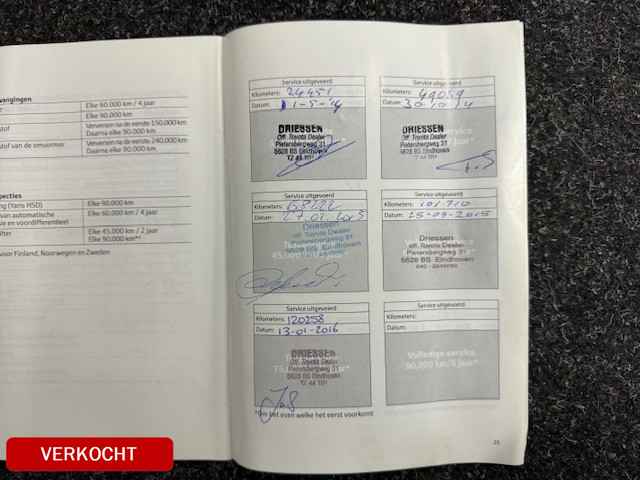 vangingen
Elke 60.000 km / 4 jaar
Elke 90.000 km
stof
Verversen na de eerste 150.000 km
Daarna elke 90.000 km
stof van de omvormer
Verversen na de eerste 240.000 km
Daarna elke 90.000 km
pecties
ng (Yaris HSD)
Elke 90.000 km
van automatische
ie en voordifferentieel
Elke 60.000 km / 4 jaar
ilter
Elke 45.000 km / 2 jaar
Elke 90.000 km**
voor Finland, Noorwegen en Zweden
Service uitgevoerd
Kilometers: 24451
Datum: 1-5-'14
DRIESSEN
Off. Toyota Dealer
Pietersbergweg 31
5628 BS Eindhoven
Service uitgevoerd
Kilometers: 49059
Datum: 30-10-14
DRIESSEN
Off. Toyota Dealer
Pietersbergweg 31
5628 BS Eindhoven
Service uitgevoerd
Kilometers:
Datum: 2015
Driessen
off. Toyota Dealer
Pietersbergweg 31
5628 BS Eindhoven
Service uitgevoerd
Kilometers: 101.710
Datum: 25-09-2015
Driessen
off. Toyota Dealer
Pietersbergweg 31
5628 BS Eindhoven
Service uitgevoerd
Kilometers: 120258
Datum: 13-01-2016
DRIESSEN
Off. Toyota Dealer
Pietersbergweg 31
5628 BS Eindhoven
Service uitgevoerd
Kilometers:
Datum:
Volledige service
90.000 km/4 jaar*
*Om het even welke het eerst voorkomt
VERKOCHT